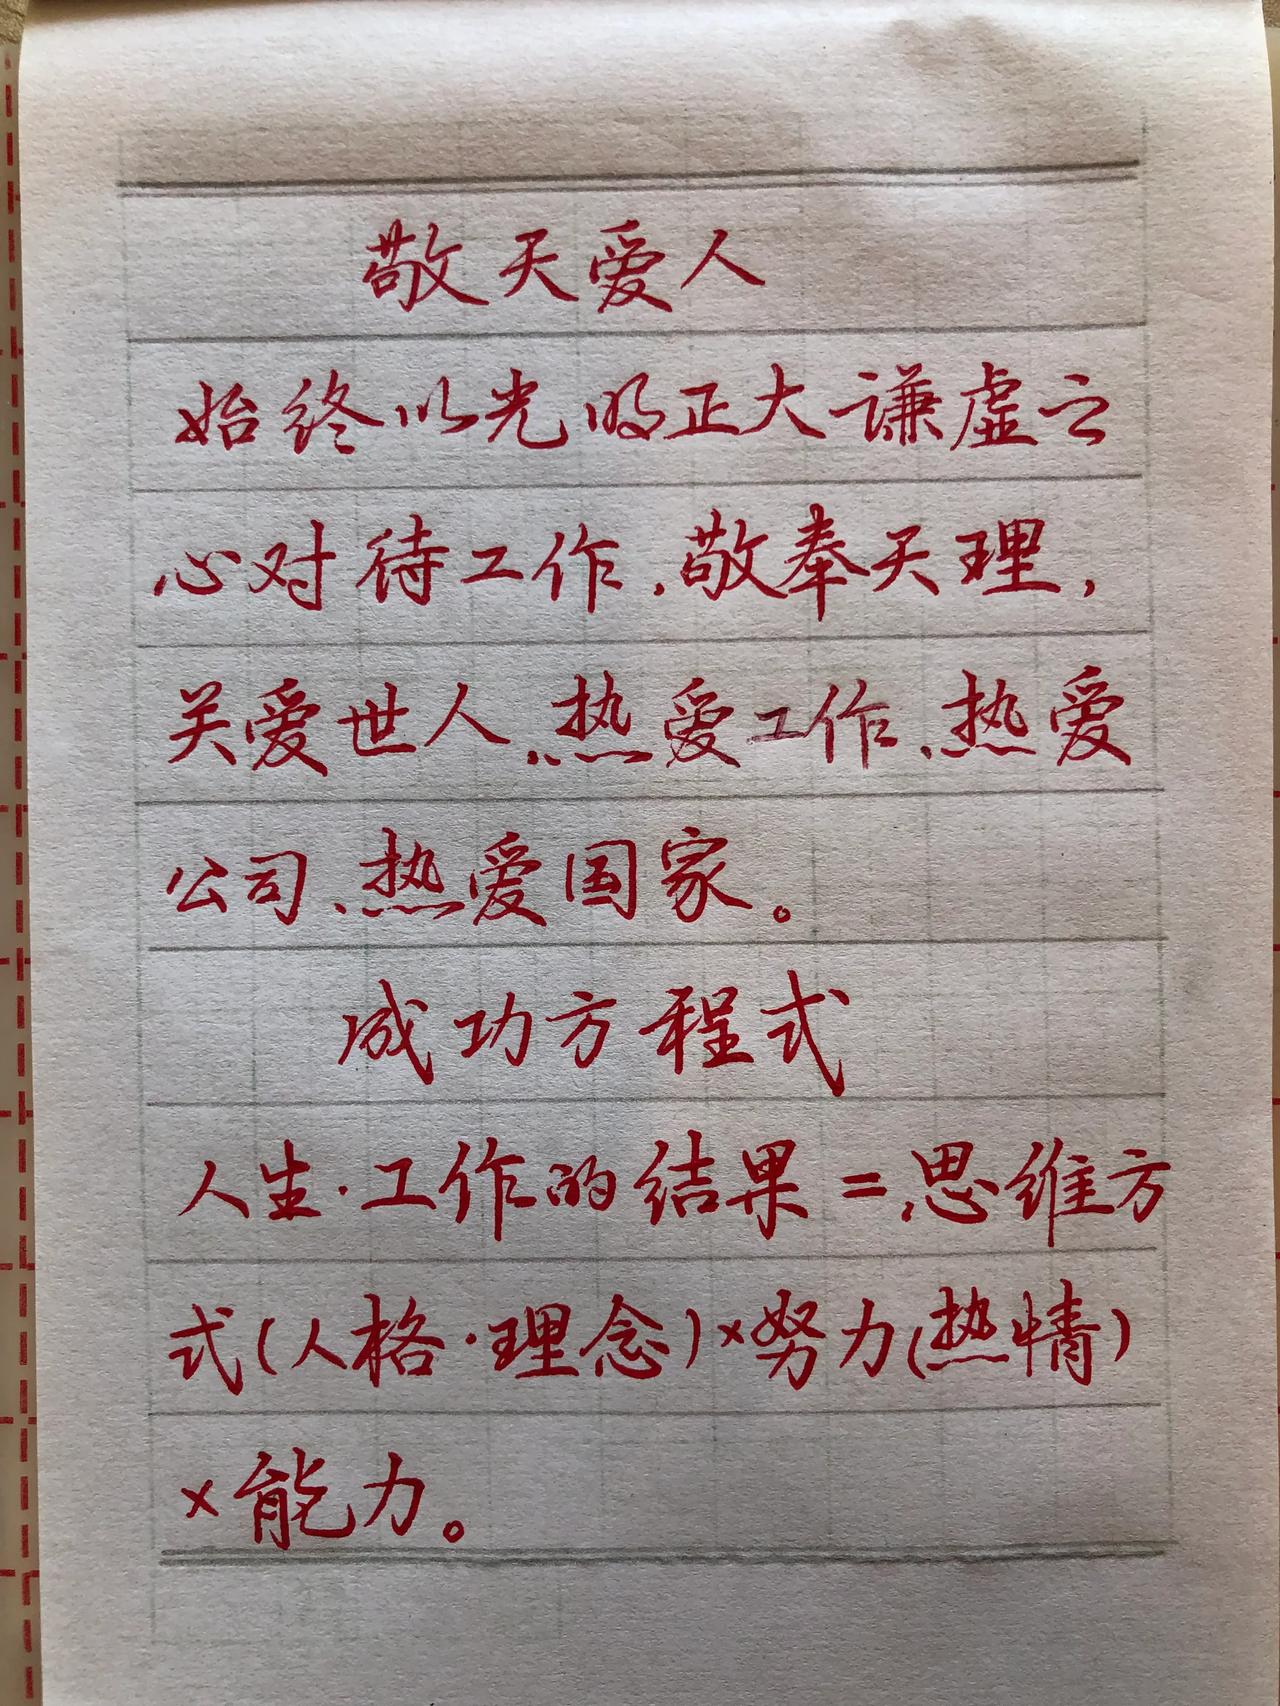 敬天爱人
始终以光明正大谦虚之
心对待工作,敬奉天理,
关爱世人、热爱工作、热爱
公司、热爱国家。
成功方程式
人生·工作的结果=思维方
式(人格·理念)×努力(热情)
×能力。